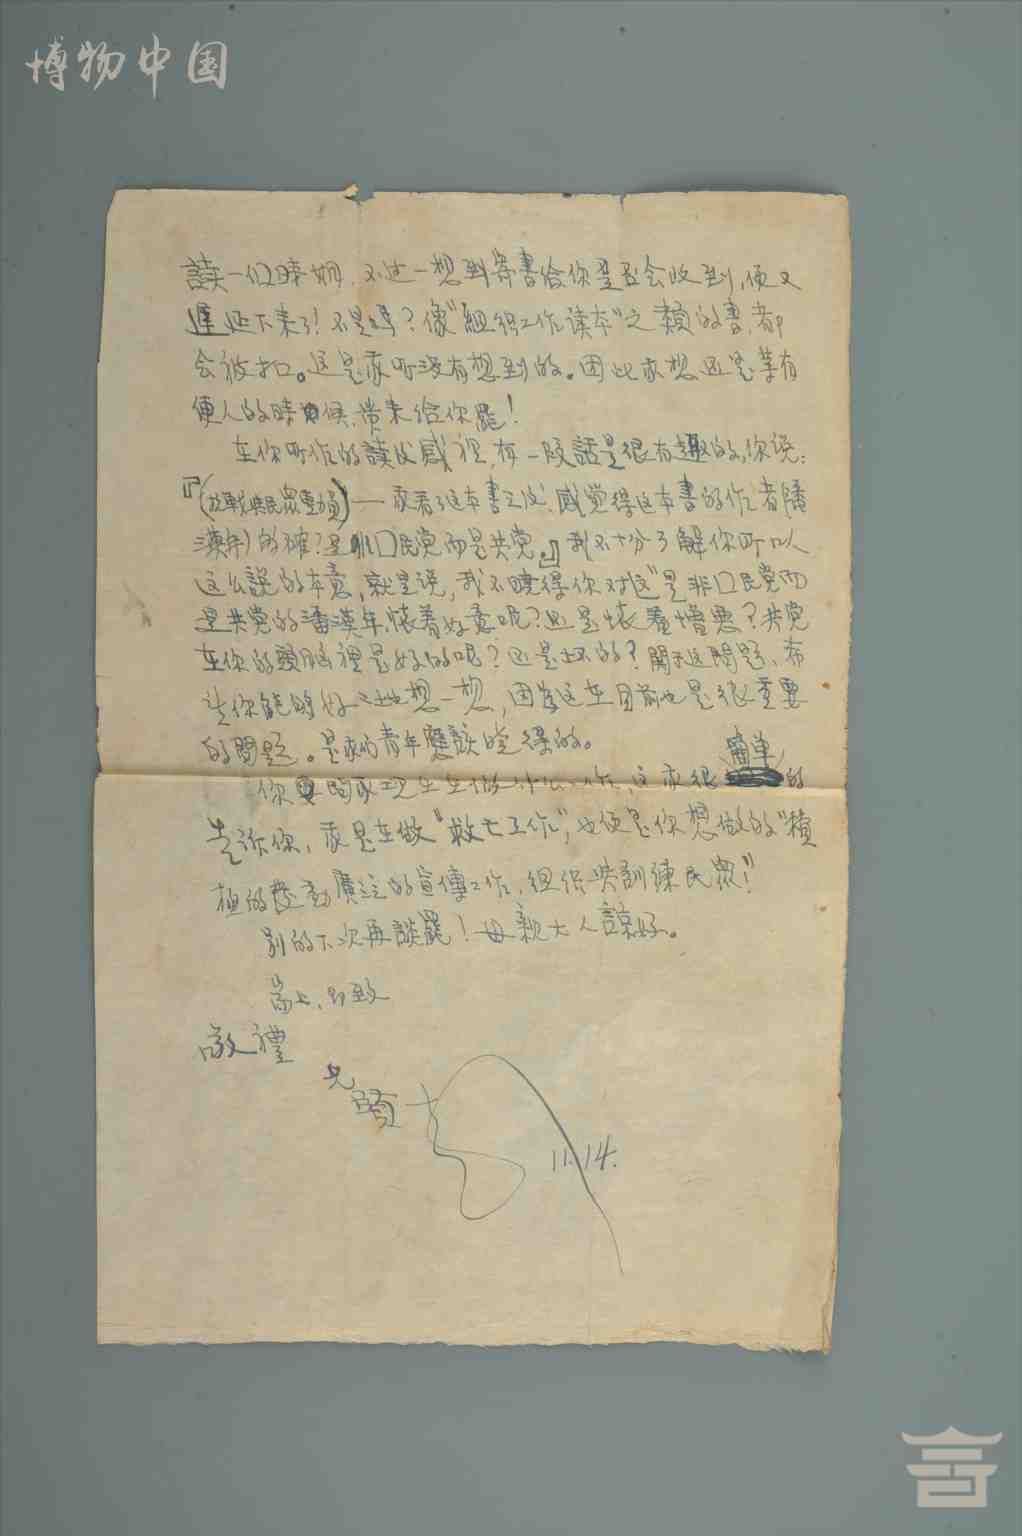 博物中国
讀一個時期，不过一想到寄書给你是否会收到，便又
遲延下来了！不是嗎？像“組织工作读本”之類的書，都
会被扣。这是我所没有想到的。因此我想还是等有
便人的時候，带来给你罷！
在你所作的讀后感裡，有一段話是很有趣的，你说：
『(抗戰與民眾動員)——我看了这本書之后，感觉得这本書的作者(潘
漢年)的確？是非囗民党而是共党。』我不十分了解你所以
这么説的本意，就是说，我不曉得你对这“是非囗民党而
是共党的潘漢年，懷着好意呢？还是懷着憎悪？共党
在你的頭脑裡是好的呢？还是坏的？關于这問題，希
望你能夠好好地想一想，因為这在目前也是很重要
的問題。是我們青年應該曉得的。
你要問我现在在做什么工作，这我很簡单的
告訴你，我是在做“救亡工作”，也便是你想做的“積
極的發動廣泛的宣傳工作，組织與訓練民眾！”
別的下次再談罷！母親大人諒好。
耑上，即致
敬禮
兄
11.14.